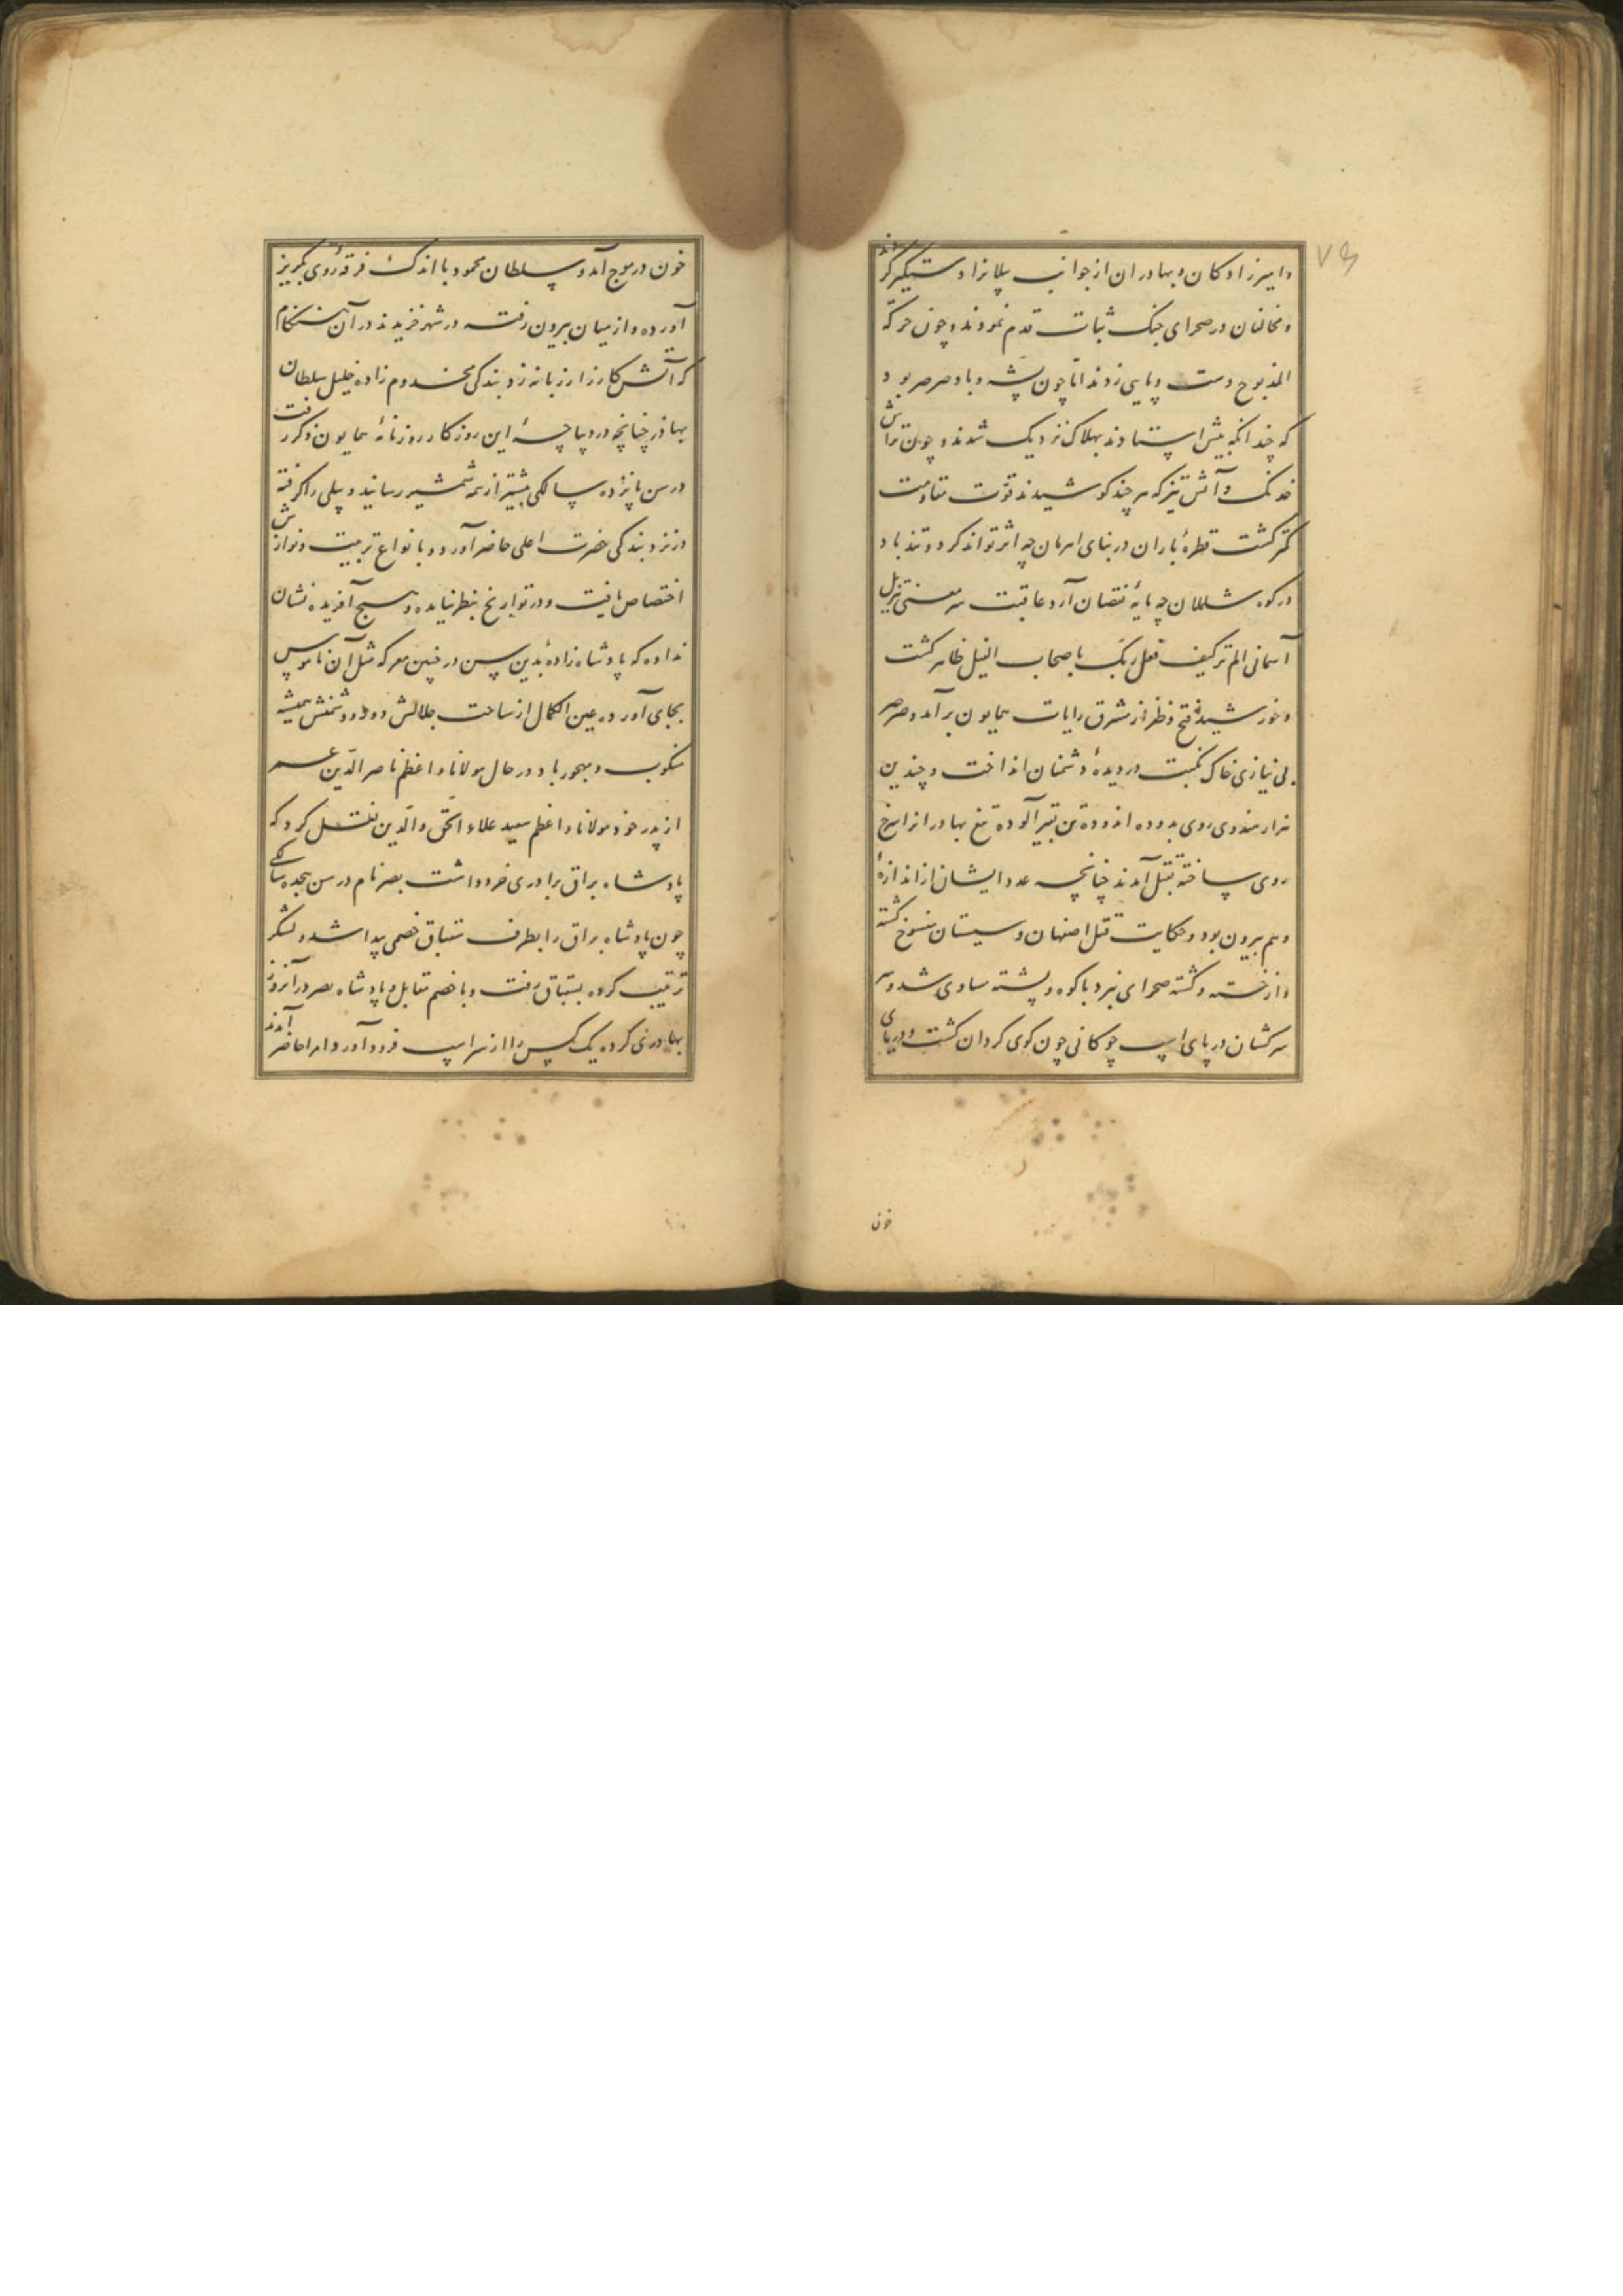 ۷۵
وامیرزادکان و بهادران از جوانب پیلانرا دستکیر کردند
و مخالفان در صحرای جنک ثبات قدم نمودند و چون حرکة
المذبوح دست و پایی زدند اما چون پشه و باد صرصر بود
که چندانکه بیش استادند بهلاک نزدیک شدند و چون تراش
خدنک و آتش تیز که هر چند کوشیدند قوت مقاومت
کمتر کشت قطرهٔ باران در بنای اهرمان چه اثر تواند کرد و تندباد
در کوه شلملان چه پایهٔ نقصان آرد عاقبت سر معنی تنزیل
آسمانی الم تر کیف فعل ربک باصحاب الفیل ظاهر کشت
و خورشید فتح و ظفر از مشرق رایات همایون برآمد و صرصر
بی نیازی خاک نکبت در دیدهٔ دشمنان انداخت و چندین
هزار هندوی روی بدوده اندوده تن بقیر آلوده تیغ بهادرانرا سرخ
روی ساخته بقتل آمدند چنانچه عدد ایشان از اندازهٔ
وهم بیرون بود و حکایت قتل اصفهان و سیستان منسوخ کشته
و از خسته و کشته صحرای نبرد با کوه و پشته مساوی شد و سر
سرکشان در پای اسپ چوکانی چون کوی کردان کشت و دریای
خون
خون در موج آمد و سلطان محمود با اندک فرقهٔ روی بکریز
آورده و از میان بیرون رفته در شهر خزیدند در آن هنکام
که آتش کارزار زبانه زد بندکی مخدوم زاده خلیل سلطان
بهادر چنانچه در دیباچهٔ این روزکار روزنامهٔ همایون ذکر رفت
در سن پانزده سالکی پیشتر از همه شمشیر رسانید و پیلی را کرفته
در نزد بندکی حضرت اعلی حاضر آورد و بانواع تربیت و نوازش
اختصاص یافت و در تواریخ بنظر نیامده و هیچ آفریده نشان
نداده که پادشاه زادهٔ بدین سن در چنین معرکه مثل آن ناموس
بجای آورده عین الکمال از ساحت جلالش دور و دشمنش همیشه
منکوب و مهجور باد درحال مولانا واعظم ناصر الدین عمر
از پدر خود مولانا و اعظم سعید علاء الحق والدین نقل کرد که
پادشاه براق برادری خرد داشت بصر نام در سن هجده سالکی
چون پادشاه براق را بطرف قبتاق خصمی پیدا شد و لشکر
ترتیب کرده بقبتاق رفت و با خصم مقابل و پادشاه بصر در آنروز
بهادری کرده یک کس را از سر اسپ فرود آورد امرا حاضر آمدند